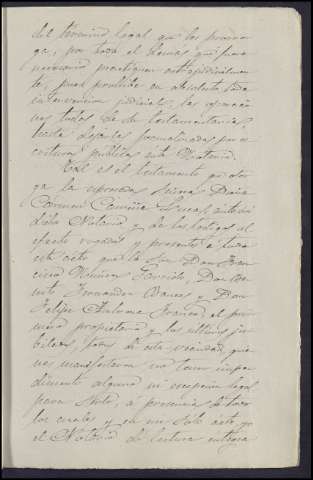 del termino legal que les prorro-
ga, por todo el demás que fuera
necesario practiquen extrajudicialmen-
te, pues prohibe en absoluto toda
intervencion judicial, las operacio-
nes todas de testamentaría,
hasta dejarlas formalizadas por es-
critura pública ante Notario.
Tal es el testamento que otor-
ga la espresada Señora Doña
Carmen ante mi
dicho Notario y de los testigos al
efecto rogados y presentes á todo
este acto que lo son Don Fran-
cisco Garrido, Don Be-
nito Fernandez y Don
Felipe el pri-
mero propietario y los ultimos ju-
bilados, todos de esta vecindad, que
nes manifestaron no tener impe-
dimento alguno ni escepcion legal
para serlo, á presencia de todos
los cuales y en un solo acto yo
el Notario dí lectura integra